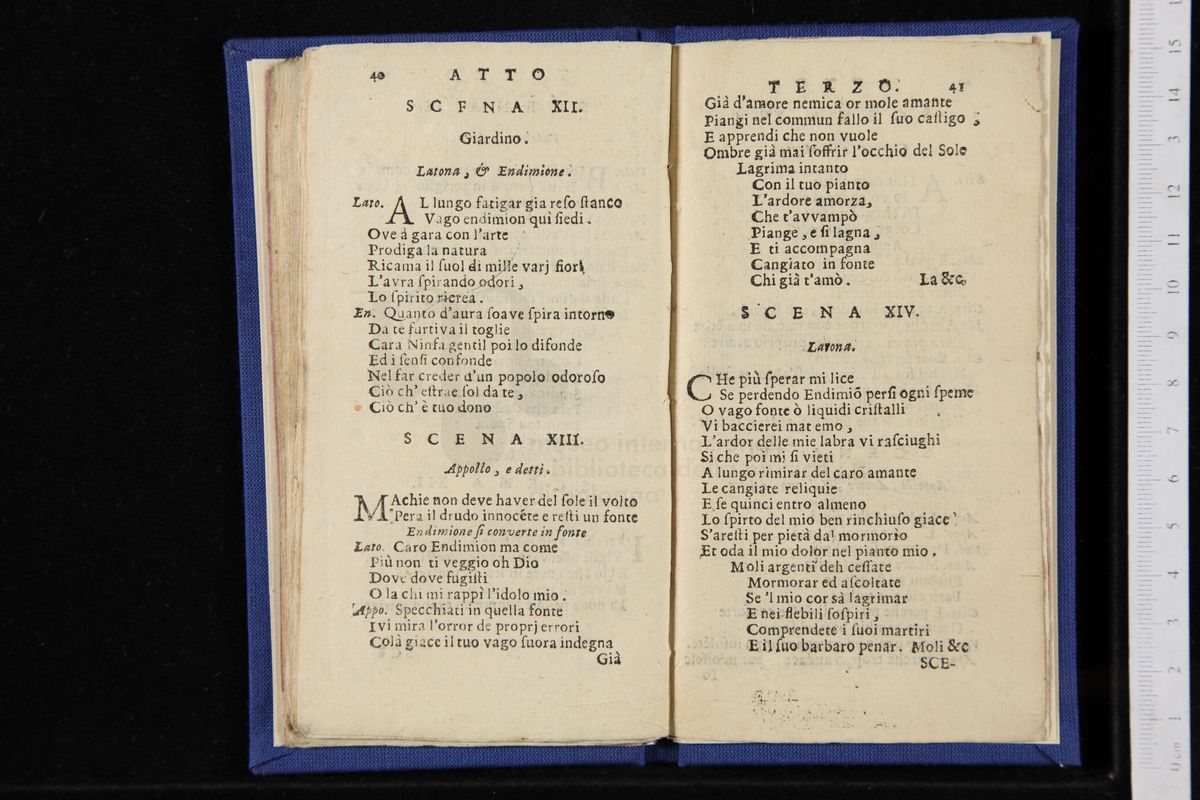 40 ATTO
SCENA XII.
Giardino.
Latona, & Endimione.
Lato. AL lungo fatigar gia reso stanco
Vago endimion qui siedi.
Ove à gara con l'arte
Prodiga la natura
Ricama il suol di mille varj fiori
L'avra spirando odori,
Lo spirito ricrea.
En. Quanto d'aura soave spira intorno
Da te furtiva il toglie
Cara Ninfa gentil poi lo difonde
Ed i sensi confonde
Nel far creder d'un popolo odoroso
Ciò ch' estrae sol da te,
Ciò ch' è tuo dono
SCENA XIII.
Appollo, e detti.
MAchie non deve haver del sole il volto
Pera il drudo innocẽte e resti un fonte
Endimione si converte in fonte
Lato. Caro Endimion ma come
Più non ti veggio oh Dio
Dove dove fugisti
O la chi mi rappì l'idolo mio.
Appo. Specchiati in quella fonte
Ivi mira l'orror de proprj errori
Colà giace il tuo vago suora indegna
Già
TERZO. 41
Già d'amore nemica or mole amante
Piangi nel commun fallo il suo castigo;
E apprendi che non vuole
Ombre già mai soffrir l'occhio del Sole
Lagrima intanto
Con il tuo pianto
L'ardore amorza,
Che t'avvampò
Piange, e si lagna,
E ti accompagna
Cangiato in fonte
Chi già t'amò. La &c.
SCENA XIV.
Latona.
CHe più sperar mi lice
Se perdendo Endimiõ persi ogni speme
O vago fonte ò liquidi cristalli
Vi baccierei ma temo,
L'ardor delle mie labra vi rasciughi
Si che poi mi si vieti
A lungo rimirar del caro amante
Le cangiate reliquie
E se quinci entro almeno
Lo spirto del mio ben rinchiuso giace
S'aresti per pietà dal mormorìo
Et oda il mio dolor nel pianto mio.
Moli argenti deh cessate
Mormorar ed ascoltate
Se 'l mio cor sà lagrimar
E nei flebili sospiri,
Comprendete i suoi martiri
E il suo barbaro penar. Moli &c
SCE-